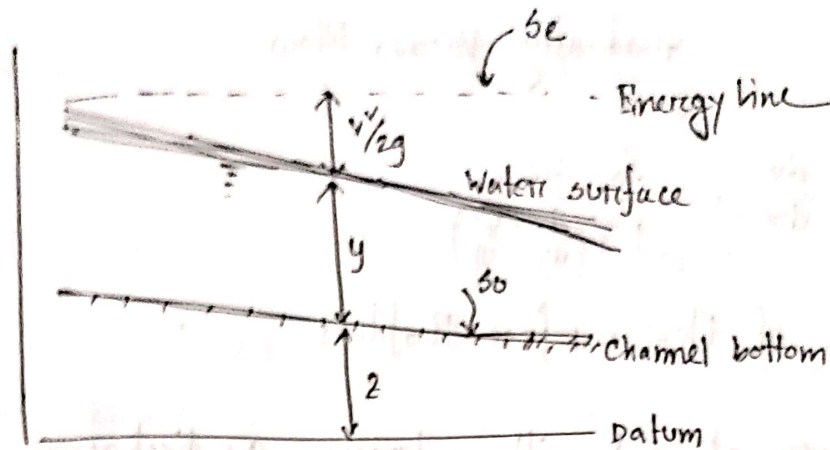 Se
Energy line
v²/2g
Water surface
y
So
Channel bottom
z
Datum